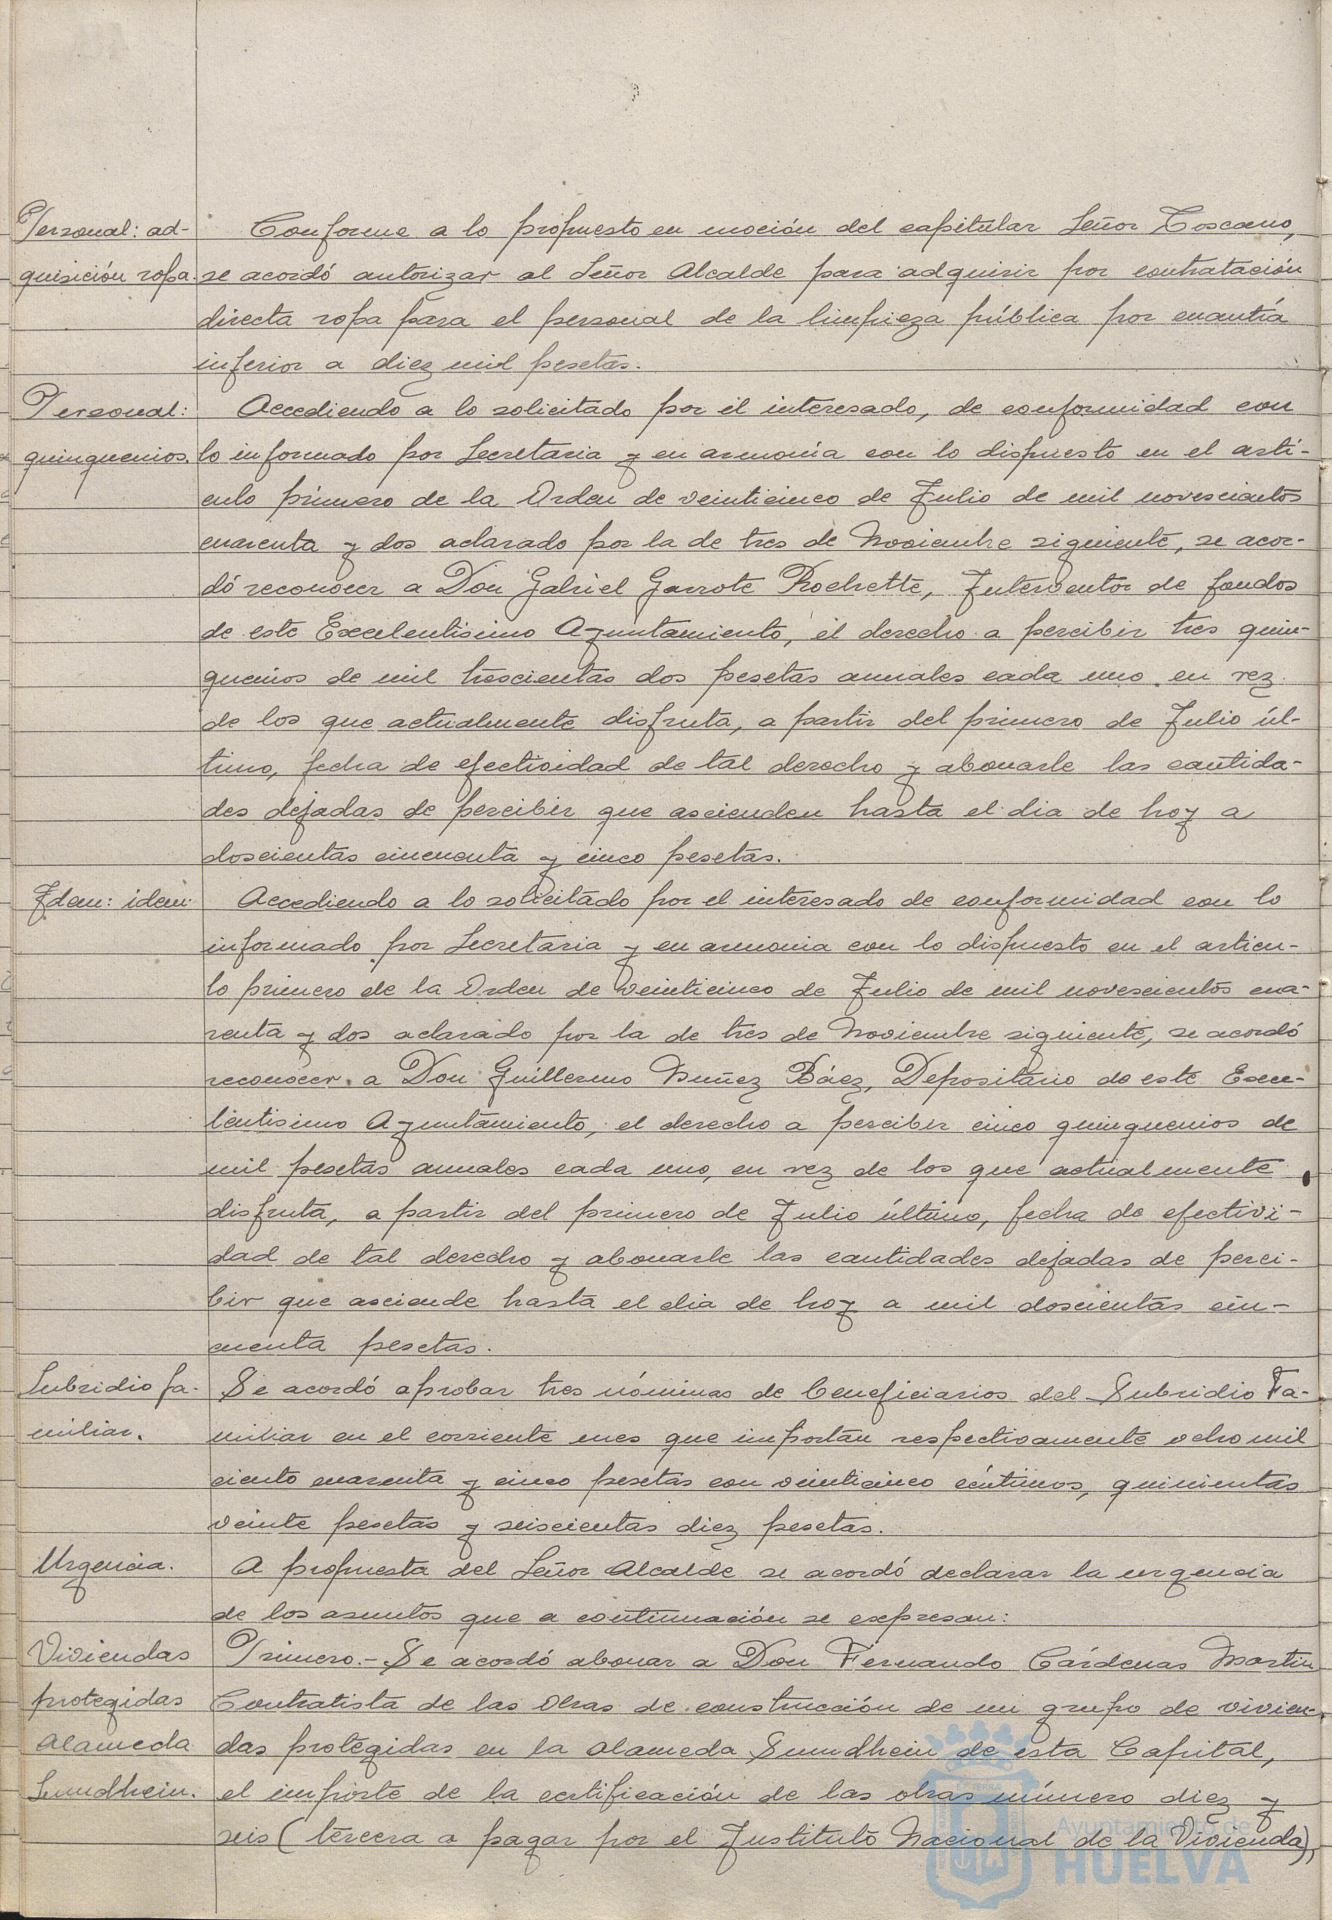 Personal: ad-
quisición ropa.
Conforme a lo propuesto en moción del capitular Señor Toscano,
se acordó autorizar al Señor Alcalde para adquirir por contratación
directa ropa para el personal de la limpieza pública por cuantía
inferior a diez mil pesetas.
Personal:
quinquenios.
Accediendo a lo solicitado por el interesado, de conformidad con
lo informado por Secretaria y en armonía con lo dispuesto en el artí-
culo primero de la Orden de veinticinco de Julio de mil novescientos
cuarenta y dos aclarado por la de tres de Noviembre siguiente, se acor-
dó reconocer a Don Gabriel Garrote Rochette, Interventor de fondos
de este Excelentisimo Ayuntamiento, el derecho a percibir tres quin-
quenios de mil trescientas dos pesetas anuales cada uno en vez
de los que actualmente disfruta, a partir del primero de Julio úl-
timo, fecha de efectividad de tal derecho y abonarle las cantida-
des dejadas de percibir que ascienden hasta el dia de hoy a
doscientas cincuenta y cinco pesetas.
Idem: idem.
Accediendo a lo solicitado por el interesado de conformidad con lo
informado por Secretaria y en armonia con lo dispuesto en el articu-
lo primero de la Orden de veinticinco de Julio de mil novescientos cua-
renta y dos aclarado por la de tres de Noviembre siguiente, se acordó
reconocer a Don Guillermo Nuñez Báez, Depositario de este Exce-
lentisimo Ayuntamiento, el derecho a percibir cinco quinquenios de
mil pesetas anuales cada uno, en vez de los que actualmente
disfruta, a partir del primero de Julio último, fecha de efectivi-
dad de tal derecho y abonarle las cantidades dejadas de perci-
bir que asciende hasta el dia de hoy a mil doscientas cin-
cuenta pesetas.
Subsidio fa-
miliar.
Se acordó aprobar tres nóminas de beneficiarios del Subsidio Fa-
miliar en el corriente mes que importan respectivamente ocho mil
ciento cuarenta y cinco pesetas con veinticinco céntimos, quinientas
veinte pesetas y seiscientas diez pesetas.
Urgencia.
A propuesta del Señor Alcalde se acordó declarar la urgencia
de los asuntos que a continuación se expresan:
Viviendas
protegidas
Alameda
Sundhein.
Primero.- Se acordó abonar a Don Fernando Cárdenas Martin
Contratista de las obras de construcción de un grupo de vivien-
das protegidas en la Alameda Sundhein de esta Capital,
el importe de la certificación de las obras número diez y
seis (tercera a pagar por el Instituto Nacional de la Vivienda),
Ayuntamiento de
HUELVA